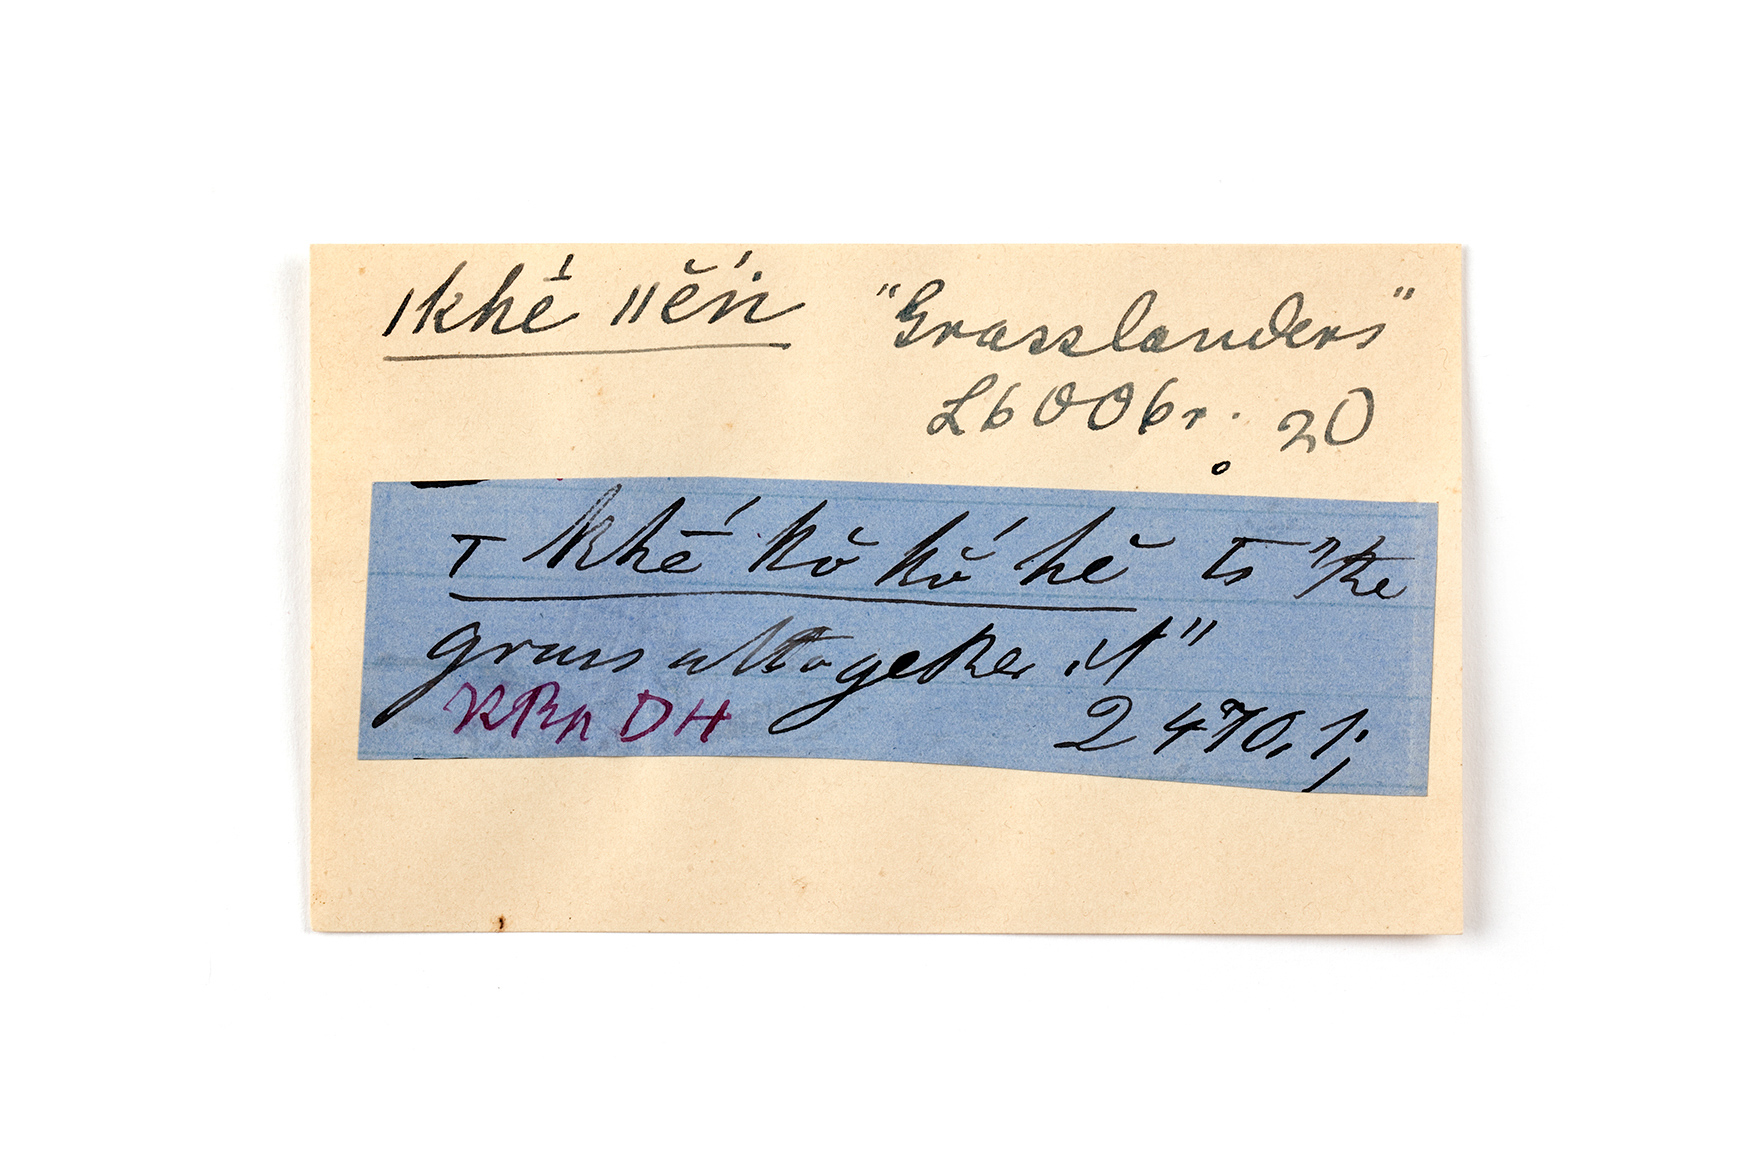 ǀkhē ǁĕń "Grasslanders"
L6006r. 20
T khḗ kŏ kŏ́ hĕ is "the
grass altogether it"
DH 2470,1;